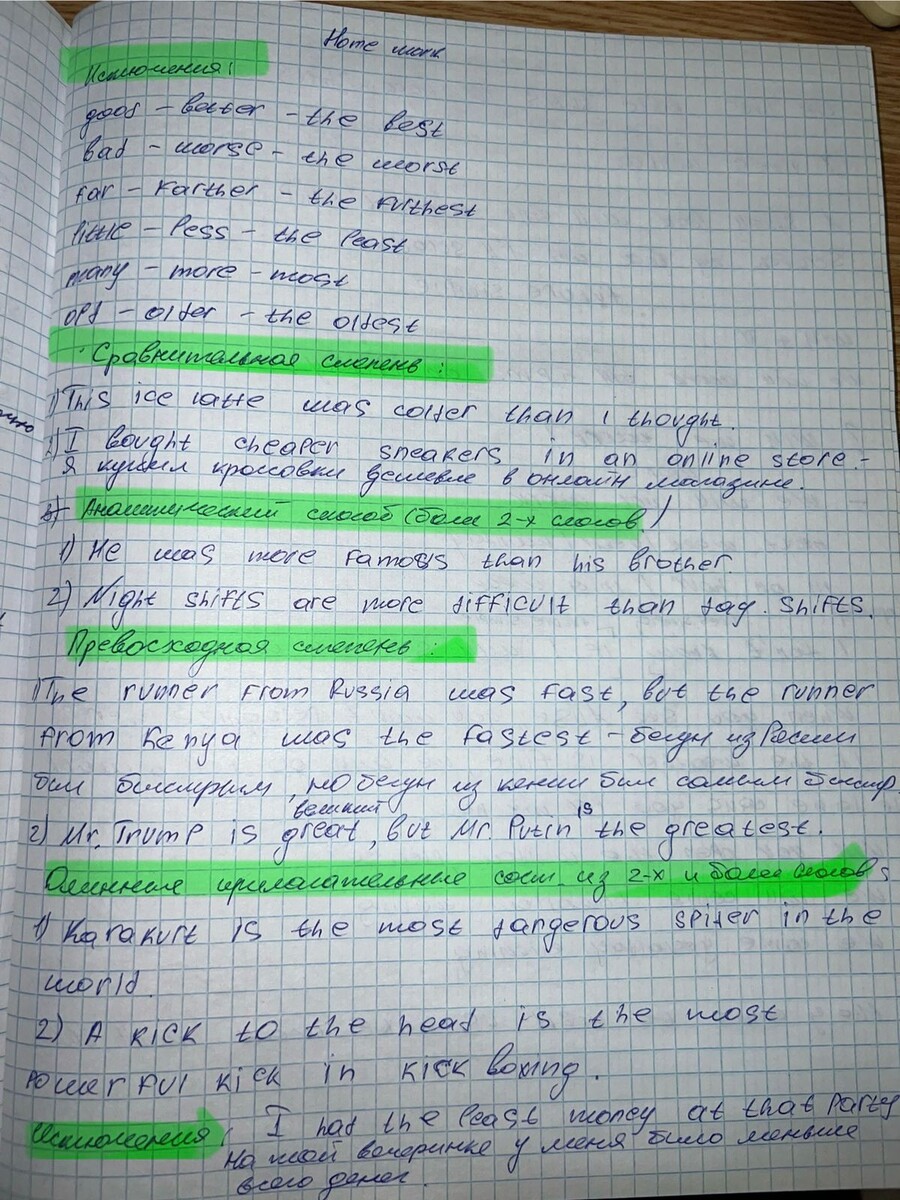 Home work
Исключения:
good - better - the best
bad - worse - the worst
far - farther - the furthest
little - less - the least
many - more - most
old - older - the oldest
Сравнительная степень :
1) This ice latte was colder than I thought.
2) I bought cheaper sneakers in an online store. -
Я купил кросовки дешевле в онлайн магазине.
Аналитический способ (более 2-х слогов)
1) He was more famous than his brother.
2) Night shifts are more difficult than day. shifts.
Превосходная степень :
1) The runner from Russia was fast, but the runner
from Kenya was the fastest - бегун из России
был быстрым, но бегун из кении был самым быстр
великий
2) Mr. Trump is great, but Mr. Putin is the greatest.
Длинные прилагательные сост. из 2-х и более слогов:
1) Karakurt is the most dangerous spider in the
world.
2) A kick to the head is the most
powerful kick in kick boxing.
Исключения: I had the least money at that party
На той вечеринке у меня было меньше
всего денег.